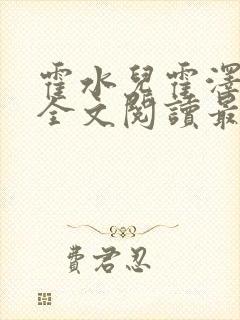 霍水兒霍澤
全文閱讀最
費君忍